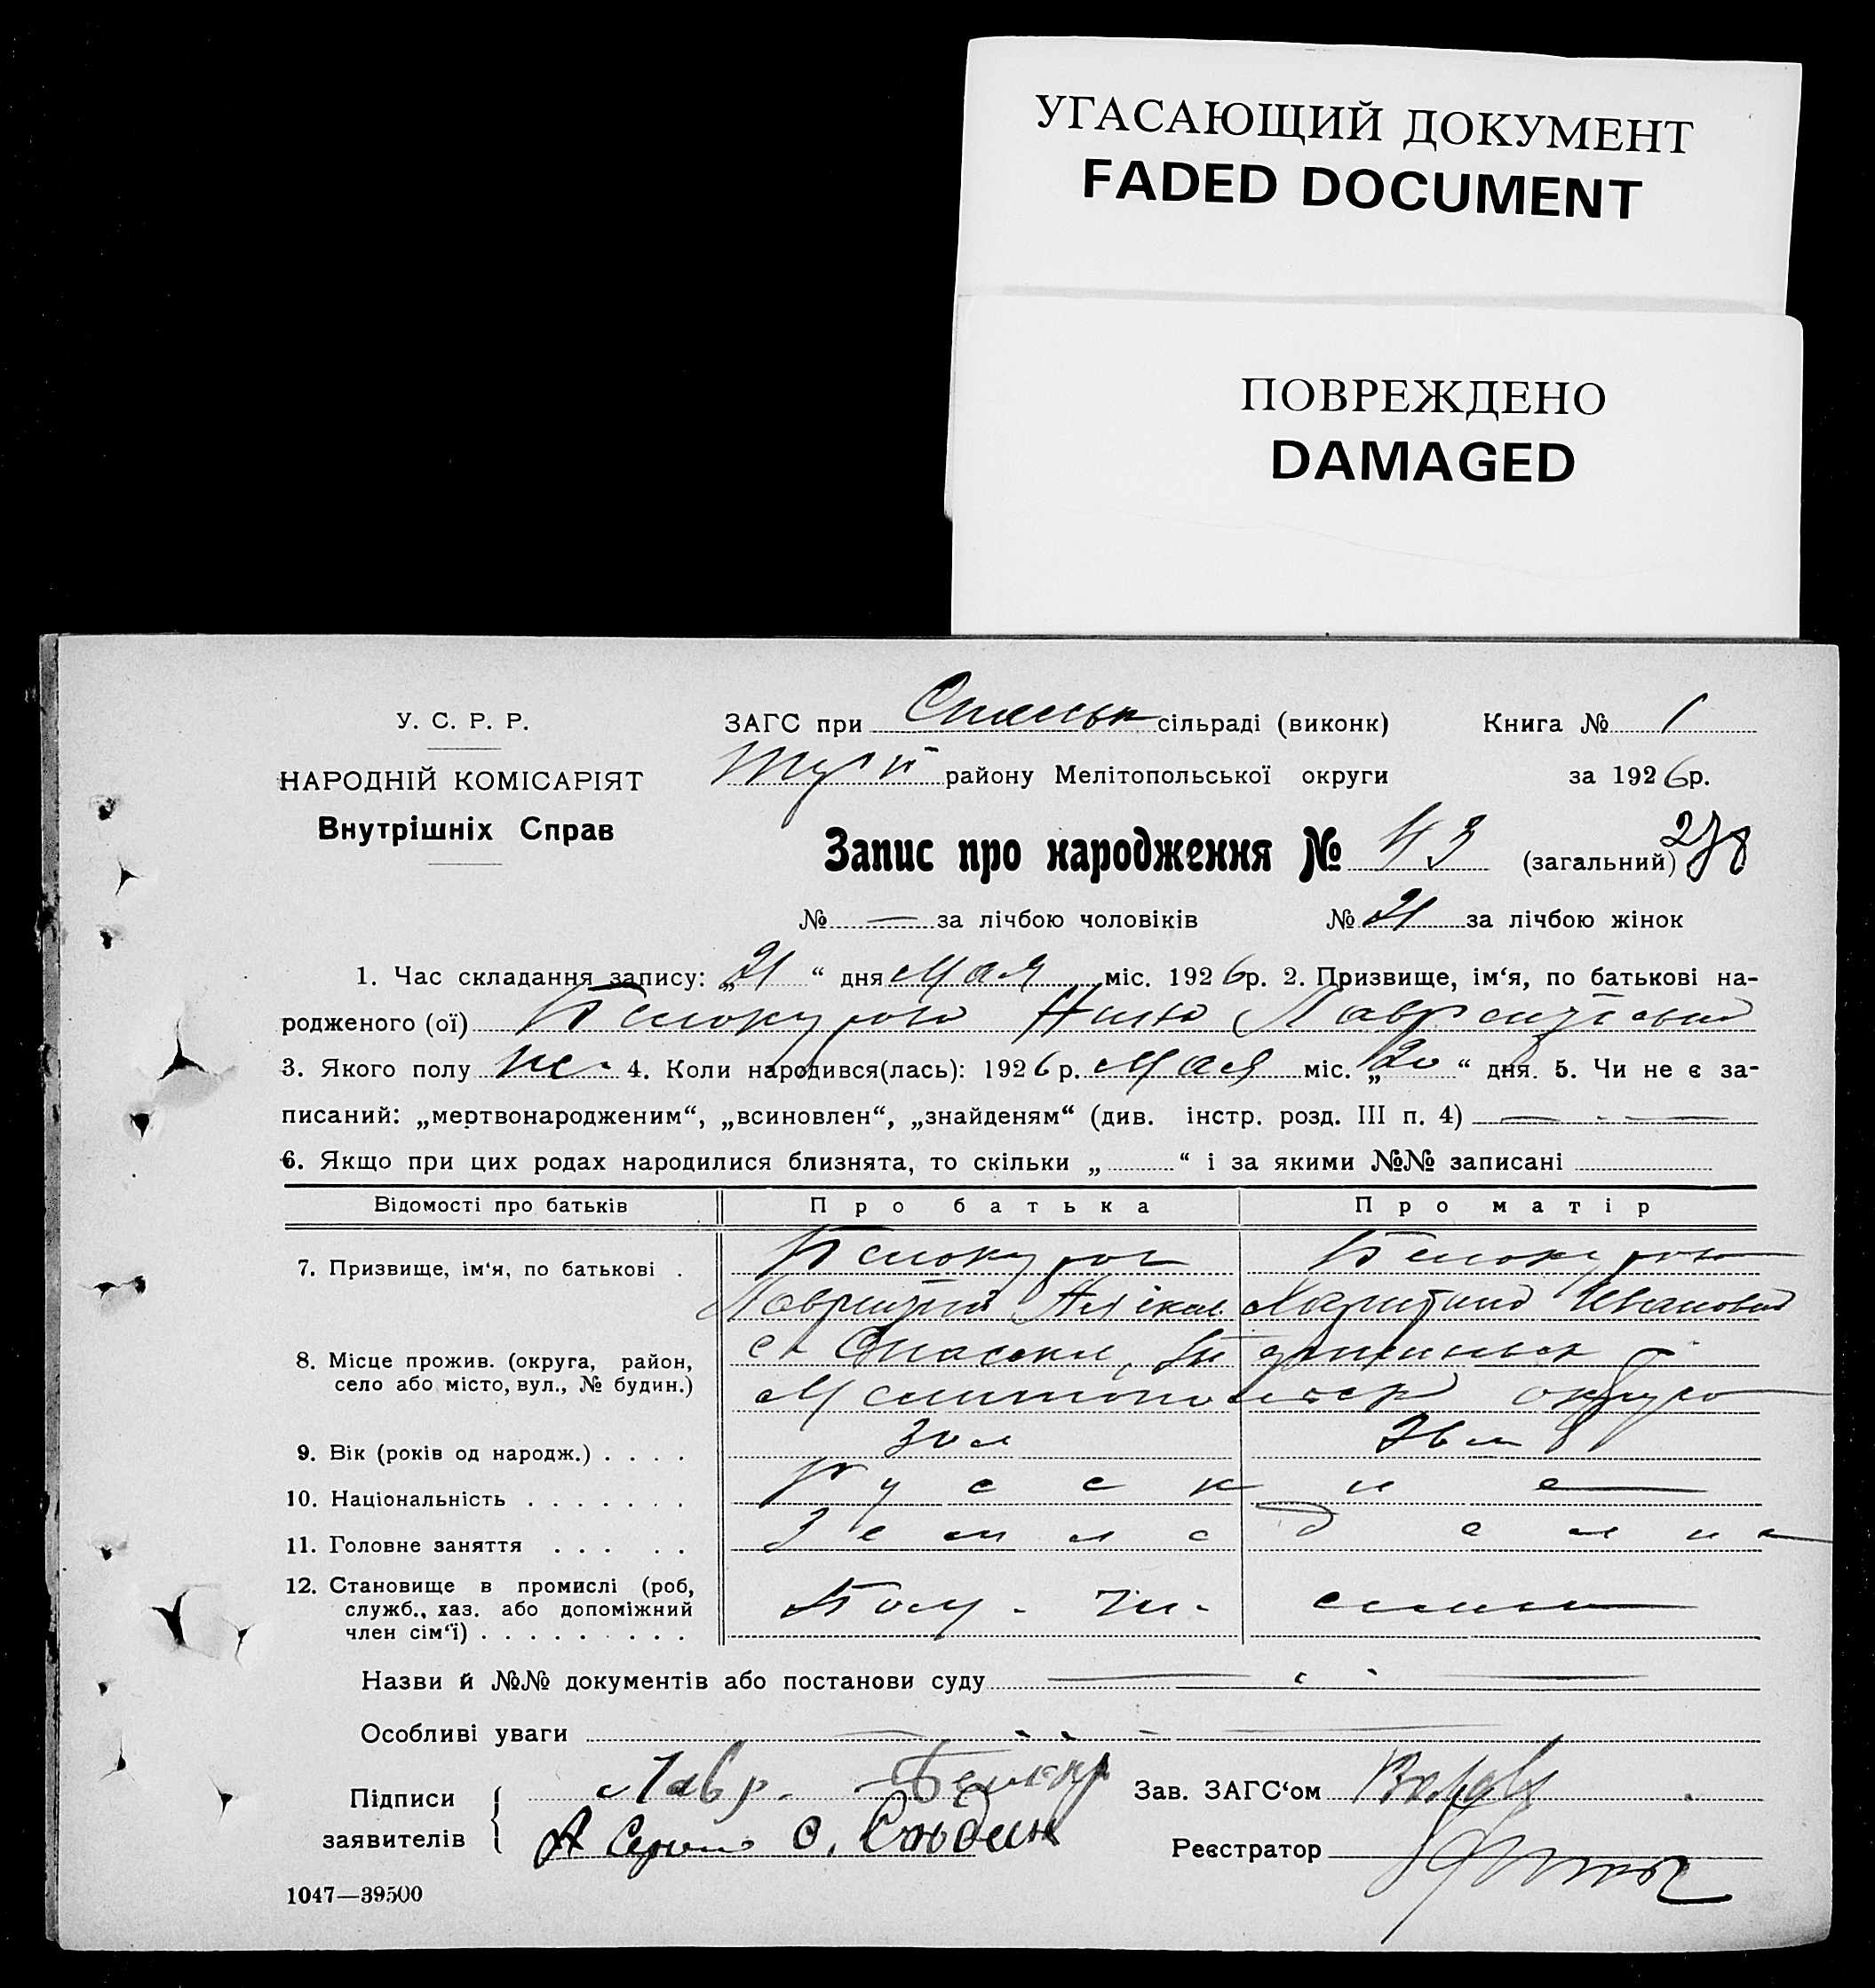 УГАСАЮЩИЙ ДОКУМЕНТ
FADED DOCUMENT
ПОВРЕЖДЕНО
DAMAGED
У. С. Р. Р.
НАРОДНІЙ КОМІСАРІЯТ
Внутрішніх Справ
ЗАГС при Спасськ сільраді (виконк) Книга № 1
району Мелітопольської округи за 1926р.
Запис про народження № 43 (загальний) 278
№ — за лічбою чоловіків № 21 за лічбою жінок
1. Час складання запису: „21 “ дня Мая міс. 1926р. 2. Призвище, ім‘я, по батькові на-
родженого (ої) Белокурова Нина Лаврентіевна
3. Якого полу ж. 4. Коли народився(лась): 1926р. Мая міс. „20 “ дня. 5. Чи не є за-
писаний: „мертвонародженим“, „всиновлен“, „знайденям“ (див. інстр. розд. III п. 4) — - —
6. Якщо при цих родах народилися близнята, то скільки „ “ і за якими №№ записані
Відомості про батьків Про батька Про матір
7. Призвище, ім‘я, по батькові . Белокуров Белокурова
Лаврентий Харитина Ивановна
8. Місце прожив. (округа, район,
село або місто, вул., № будин.)
с. Спасское,
Мелитопольск округа
9. Вік (років од народж.) . . . . 30 л 26 л
10. Національність . . . . . . . Русские
11. Головне заняття . . . . . Земледелие
12. Становище в промислі (роб,
служб., хаз. або допоміжний
член сім‘ї) . . . . . . . . .
семьи
Назви й №№ документів або постанови суду
Особливі уваги
Підписи
заявителів
Лавр. Белокур
Зав. ЗАГС‘ом
Реєстратор
1047—39500